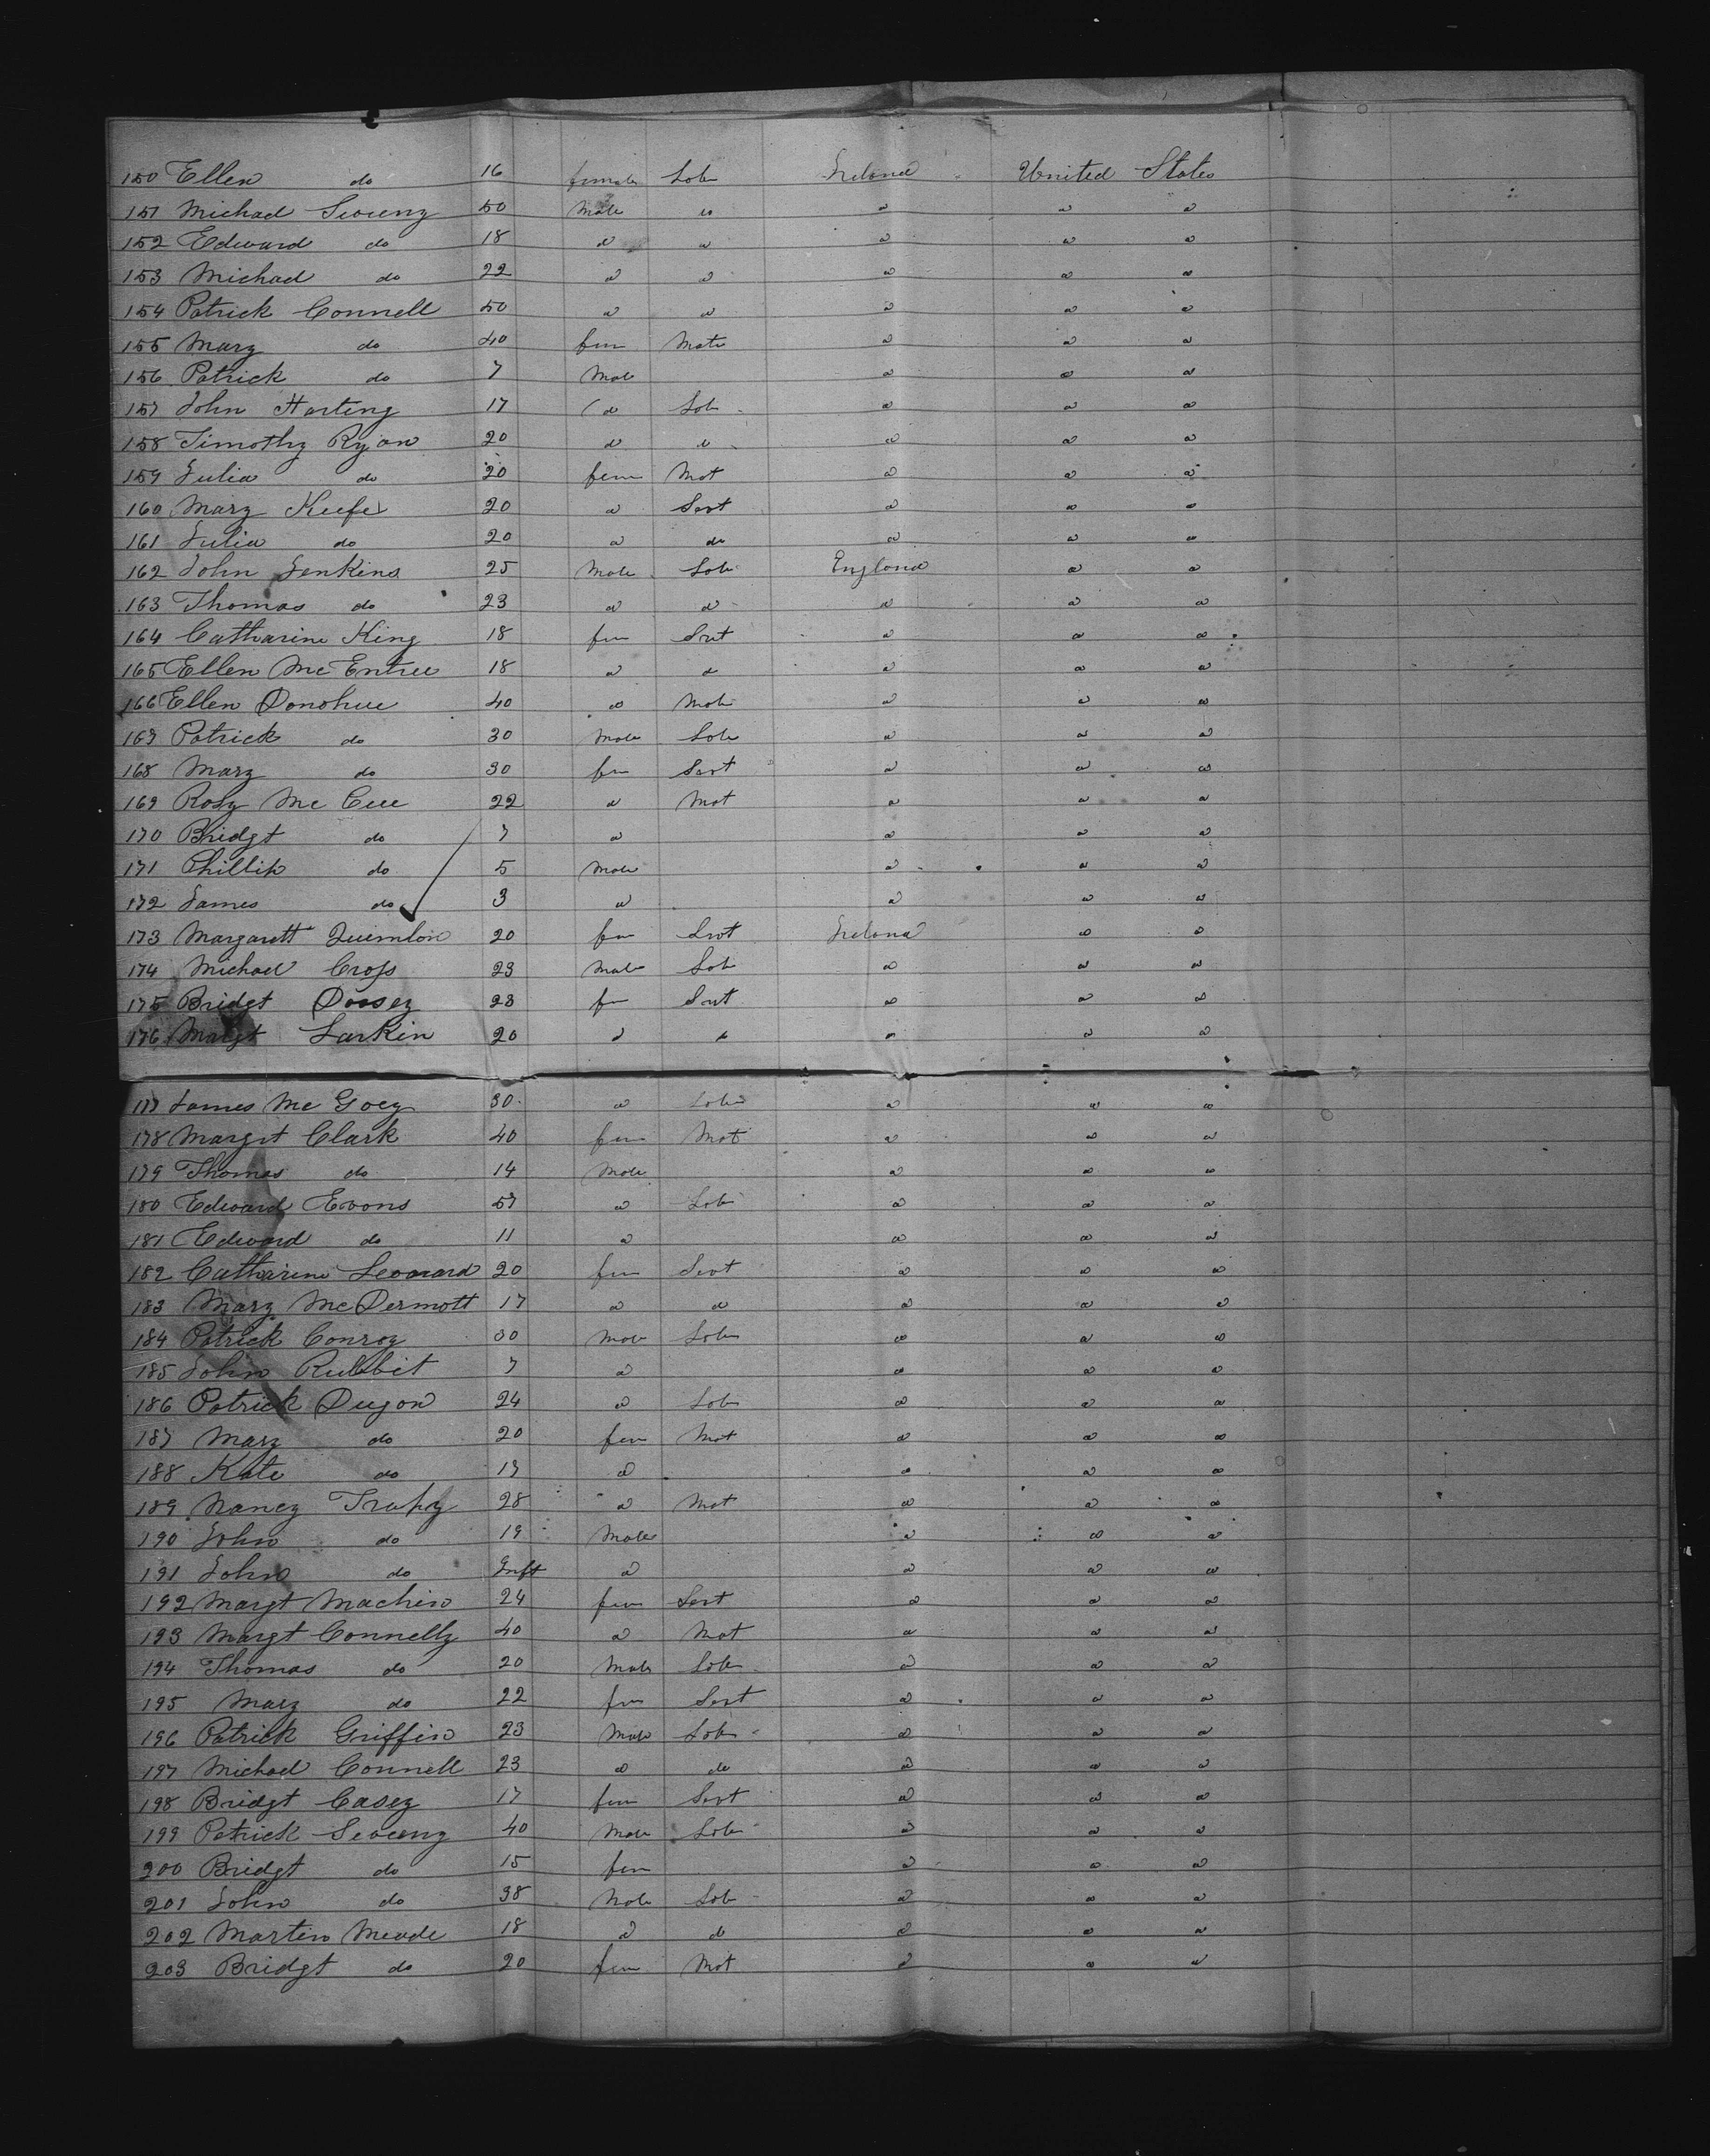 150 Ellen do 16 female Lab Ireland United States
151 Michael Sweeny 50 Male do do do do
152 Edward do 18 do do do do do
153 Michael do 22 do do do do do
154 Patrick Connell 50 do do do do do
155 Mary do 40 fem Mat do do do
156 Patrick do 7 Male do do do
157 John Harting 17 do Lab do do do
158 Timothy Ryan 20 do do do do do
159 Julia do 20 fem Mat do do do
160 Mary Keefe 20 do Servt do do do
161 Julia do 20 do do do do do
162 John Jenkins 25 Male Lab England do do
163 Thomas do 23 do do do do do
164 Catharine King 18 fem Srvt do do do
165 Ellen McEntree 18 do do do do do
166 Ellen Donohue 40 do Mat do do do
167 Patrick do 30 Male Lab do do do
168 Mary do 30 fem Servt do do do
169 Rosy McCue 22 do Mat do do do
170 Bridgt do 7 do do do do
171 Phillip do 5 Male do do do
172 James do 3 do do do do
173 Margarett Quinlan 20 fem Srvt Ireland do do
174 Michael Cross 23 Male Lab do do do
175 Bridgt Dorsey 23 fem Srvt do do do
176 Margt Larkin 20 do do do do do
177 James McGoey 30 do Lab do do do
178 Margrt Clark 40 fem Mat do do do
179 Thomas do 14 Male do do do
180 Edward Evans 57 do Lab do do do
181 Edward do 11 do do do do
182 Catharine Leonard 20 fem Servt do do do
183 Mary McDermott 17 do do do do do
184 Patrick Conroy 30 Male Lab do do do
185 John Rubbit 7 do do do do
186 Patrick Dugan 24 do Lab do do do
187 Mary do 20 fem Mat do do do
188 Kate do 17 do do do do
189 Nancy 28 do Mat do do do
190 John do 19 Male do do do
191 John do Inft do do do do
192 Margt Machin 24 fem Servt do do do
193 Margt Connelly 40 do Mat do do do
194 Thomas do 20 Male Lab do do do
195 Mary do 22 fem Servt do do do
196 Patrick Griffin 23 Male Lab do do do
197 Michael Connell 23 do do do do do
198 Bridgt Casey 17 fem Servt do do do
199 Patrick Sweeny 40 Male Lab do do do
200 Bridgt do 15 fem do do do
201 John do 38 Male Lab do do do
202 Martin Meade 18 do do do do do
203 Bridgt do 20 fem Mat do do do